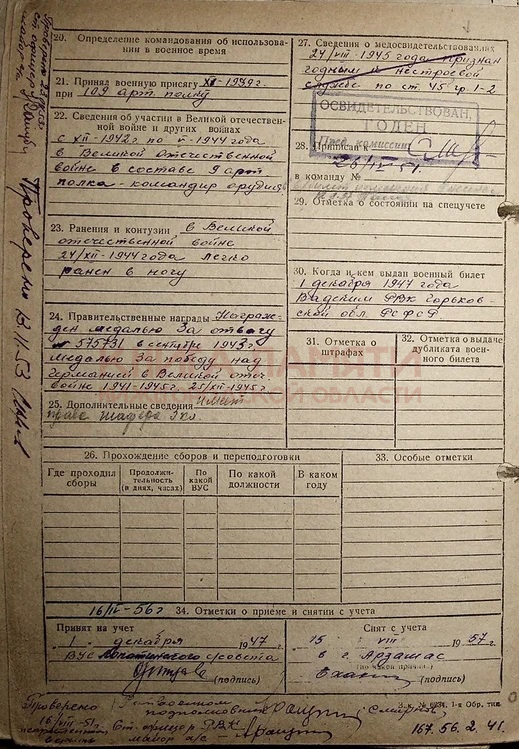 20. Определение командования об использовании в военное время
21. Принял военную присягу XII-1939 г.
при 109 арт. полку
22. Сведения об участии в Великой отечественной войне и других войнах
с XII-1942 г. по V-1944 года
в Великой Отечественной
войне в составе 9 арт
полка - командир орудия
23. Ранения и контузии в Великой
отечественной войне
24/VII-1944 года легко
ранен в ногу
24. Правительственные награды Награжден
медалью За отвагу
№ 575731 в сентябре 1943 г.
медалью За победу над
Германией в Великой отеч.
войне 1941-1945 г. 25/XII-1945 г.
25. Дополнительные сведения Имеет
права шофера 3 кл
27. Сведения о медосвидетельствованиях
24/VIII-1945 года признан
годным к нестроевой
службе по ст. 45 гр 1-2
ОСВИДЕТЕЛЬСТВОВАН,
ГОДЕН
Пред. комиссии
28. Приписан к
26/IV-51
в команду №
29. Отметка о состоянии на спецучете
30. Когда и кем выдан военный билет
1 декабря 1947 года
Вадским РВК Горьковской обл. РСФСР
31. Отметка о штрафах
32. Отметка о выдаче дубликата военного билета
ПАМЯТИ
ОБЛАСТИ
26. Прохождение сборов и переподготовки
Где проходил сборы
Продолжительность (в днях, часах)
По какой ВУС
По какой должности
В каком году
33. Особые отметки
16/IV-56 г
34. Отметки о приеме и снятии с учета
Принят на учет
1 декабря 1947 г.
(подпись)
Снят с учета
15 VIII 1957 г.
в г. Арзамас
(по какой причине)
(подпись)
Проверено
16/VIII-51 г.
майор а/с
Проверено 13.11.53
167. 56. 2. 41.